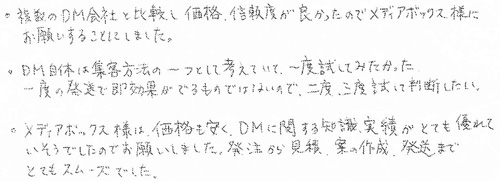 。複数のDM会社と比較し価格、信頼度が良かったのでメディアボックス様に
お願いすることにしました。
。DM自体は集客方法の一つとして考えていて、一度試してみたかった
一度の発送で即効果がでるものではないので、二度、三度試して判断したい。
。メディアボックス様は、価格も安く、DMに関する知識、実績がとても優れて
いそうでしたのでお願いしました。発注から見積、案の作成、発送まで
とてもスムーズでした。